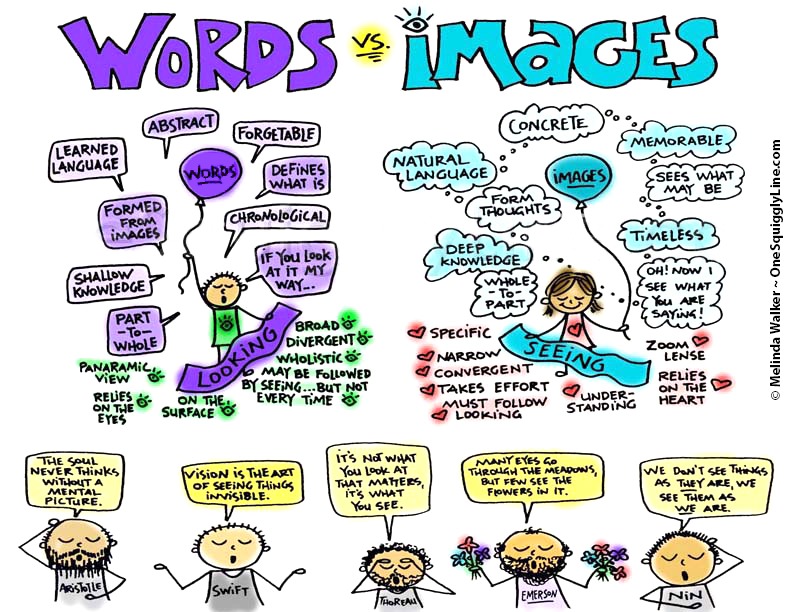 WORDS vs. iMAGES
ABSTRACT
FORGETABLE
LEARNED
LANGUAGE
WORDS
DEFINES
WHAT IS
FORMED
FROM
IMAGES
CHRONOLOGICAL
SHALLOW
KNOWLEDGE
IF YOU LOOK
AT IT MY
WAY...
PART
-TO-
WHOLE
LOOKING
PANARAMIC
VIEW
RELIES
ON THE
EYES
ON THE
SURFACE
BROAD
DIVERGENT
WHOLISTIC
MAY BE FOLLOWED
BY SEEING...BUT NOT
EVERY TIME
CONCRETE
MEMORABLE
NATURAL
LANGUAGE
iMAGES
SEES WHAT
MAY BE
FORM
THOUGHTS
TIMELESS
DEEP
KNOWLEDGE
WHOLE
-TO-
PART
OH! NOW I
SEE WHAT
YOU ARE
SAYING!
SEEING
SPECIFIC
NARROW
CONVERGENT
TAKES EFFORT
MUST FOLLOW
LOOKING
UNDER-
STANDING
ZOOM
LENSE
RELIES
ON THE
HEART
© Melinda Walker ~ OneSquigglyLine.com
THE SOUL
NEVER THINKS
WITHOUT A
MENTAL
PICTURE.
ARISTOTLE
VISION IS THE ART
OF SEEING THINGS
INVISIBLE.
SWIFT
IT'S NOT WHAT
YOU LOOK AT
THAT MATTERS,
IT'S WHAT
YOU SEE.
THOREAU
MANY EYES GO
THROUGH THE MEADOWS,
BUT FEW SEE THE
FLOWERS IN IT.
EMERSON
WE DON'T SEE THINGS
AS THEY ARE, WE
SEE THEM AS
WE ARE.
NIN